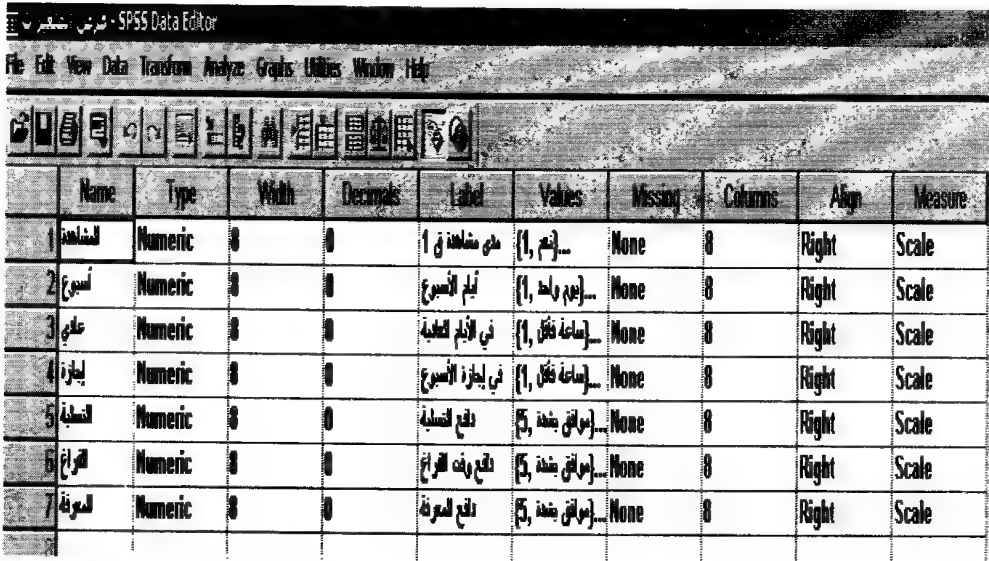 SPSS Data Editor - فرض المتغيرات
File Edit View Data Transform Analyze Graphs Utilities Window Help
Name Type Width Decimals Label Values Missing Columns Align Measure
1 المشاهدة Numeric 8 0 مدى مشاهدة ق 1 {1, نعم}... None 8 Right Scale
2 أسبوع Numeric 8 0 أيام الأسبوع {1, يوم واحد}... None 8 Right Scale
3 عادي Numeric 8 0 في الأيام العادية {1, ساعة فأقل}... None 8 Right Scale
4 إجازة Numeric 8 0 في إجازة الأسبوع {1, ساعة فأقل}... None 8 Right Scale
5 التسلية Numeric 8 0 دافع التسلية {5, موافق بشدة}... None 8 Right Scale
6 الفراغ Numeric 8 0 دافع وقت الفراغ {5, موافق بشدة}... None 8 Right Scale
7 المعرفة Numeric 8 0 دافع المعرفة {5, موافق بشدة}... None 8 Right Scale